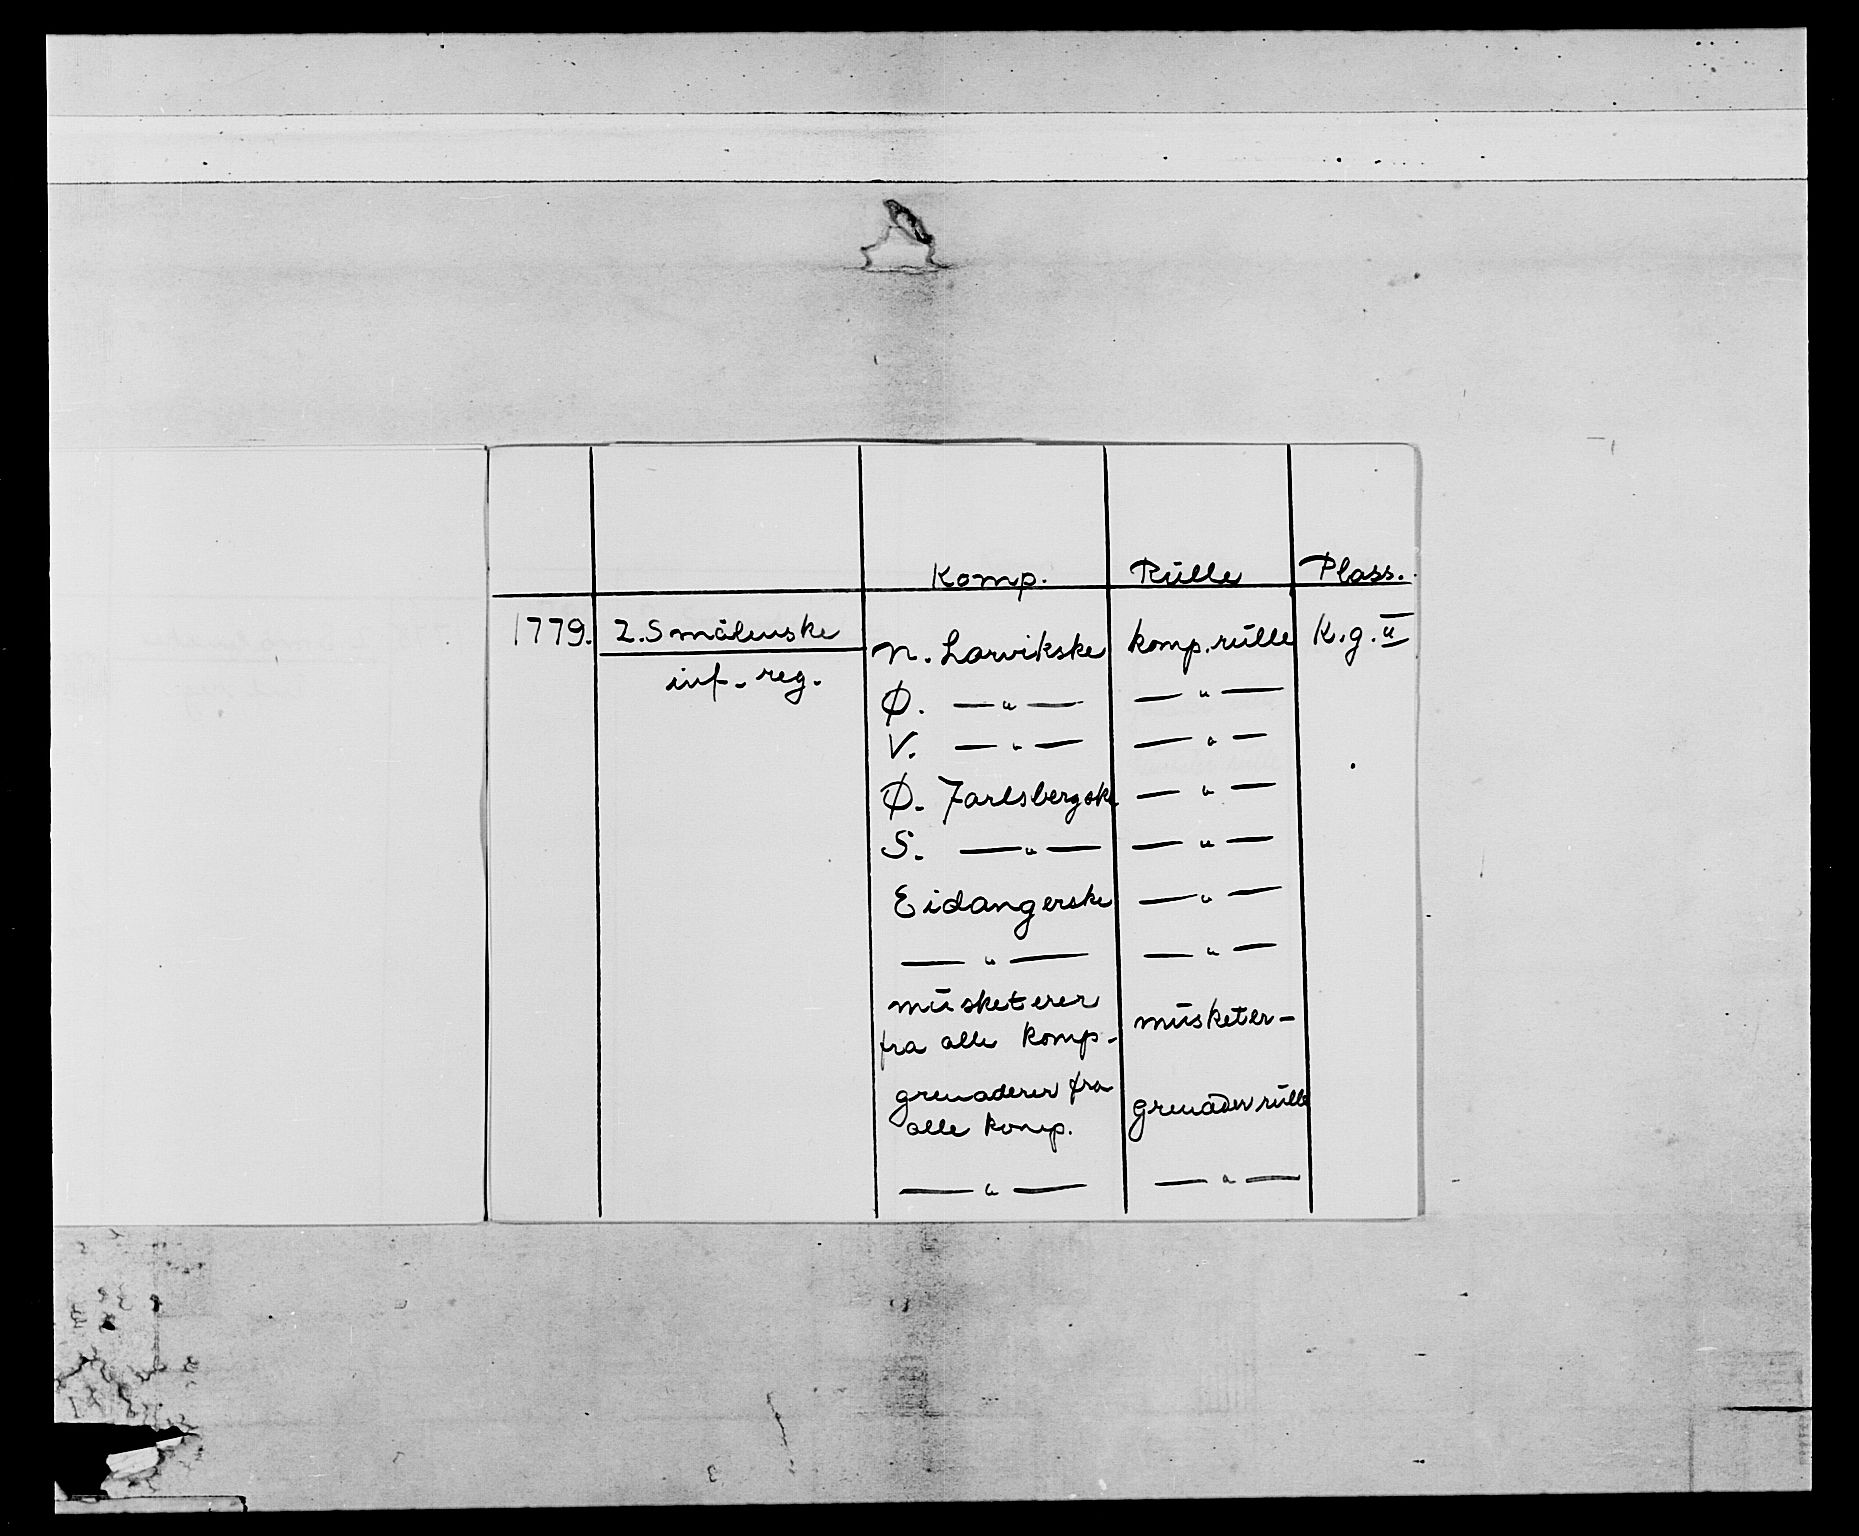 Komp. Rulle Plass.
1779. 2. Smålenske N. Larvikske komp. rulle K.g.
inf. reg.
Ø. — " — — " —
V. — " — — " —
Ø. Jarlsbergske — " —
S. — " — — " —
Eidangerske — " —
— " — — " —
musketerer
fra alle komp. musketer-
grenaderer fra
alle komp. grenader rulle
— " — — " —